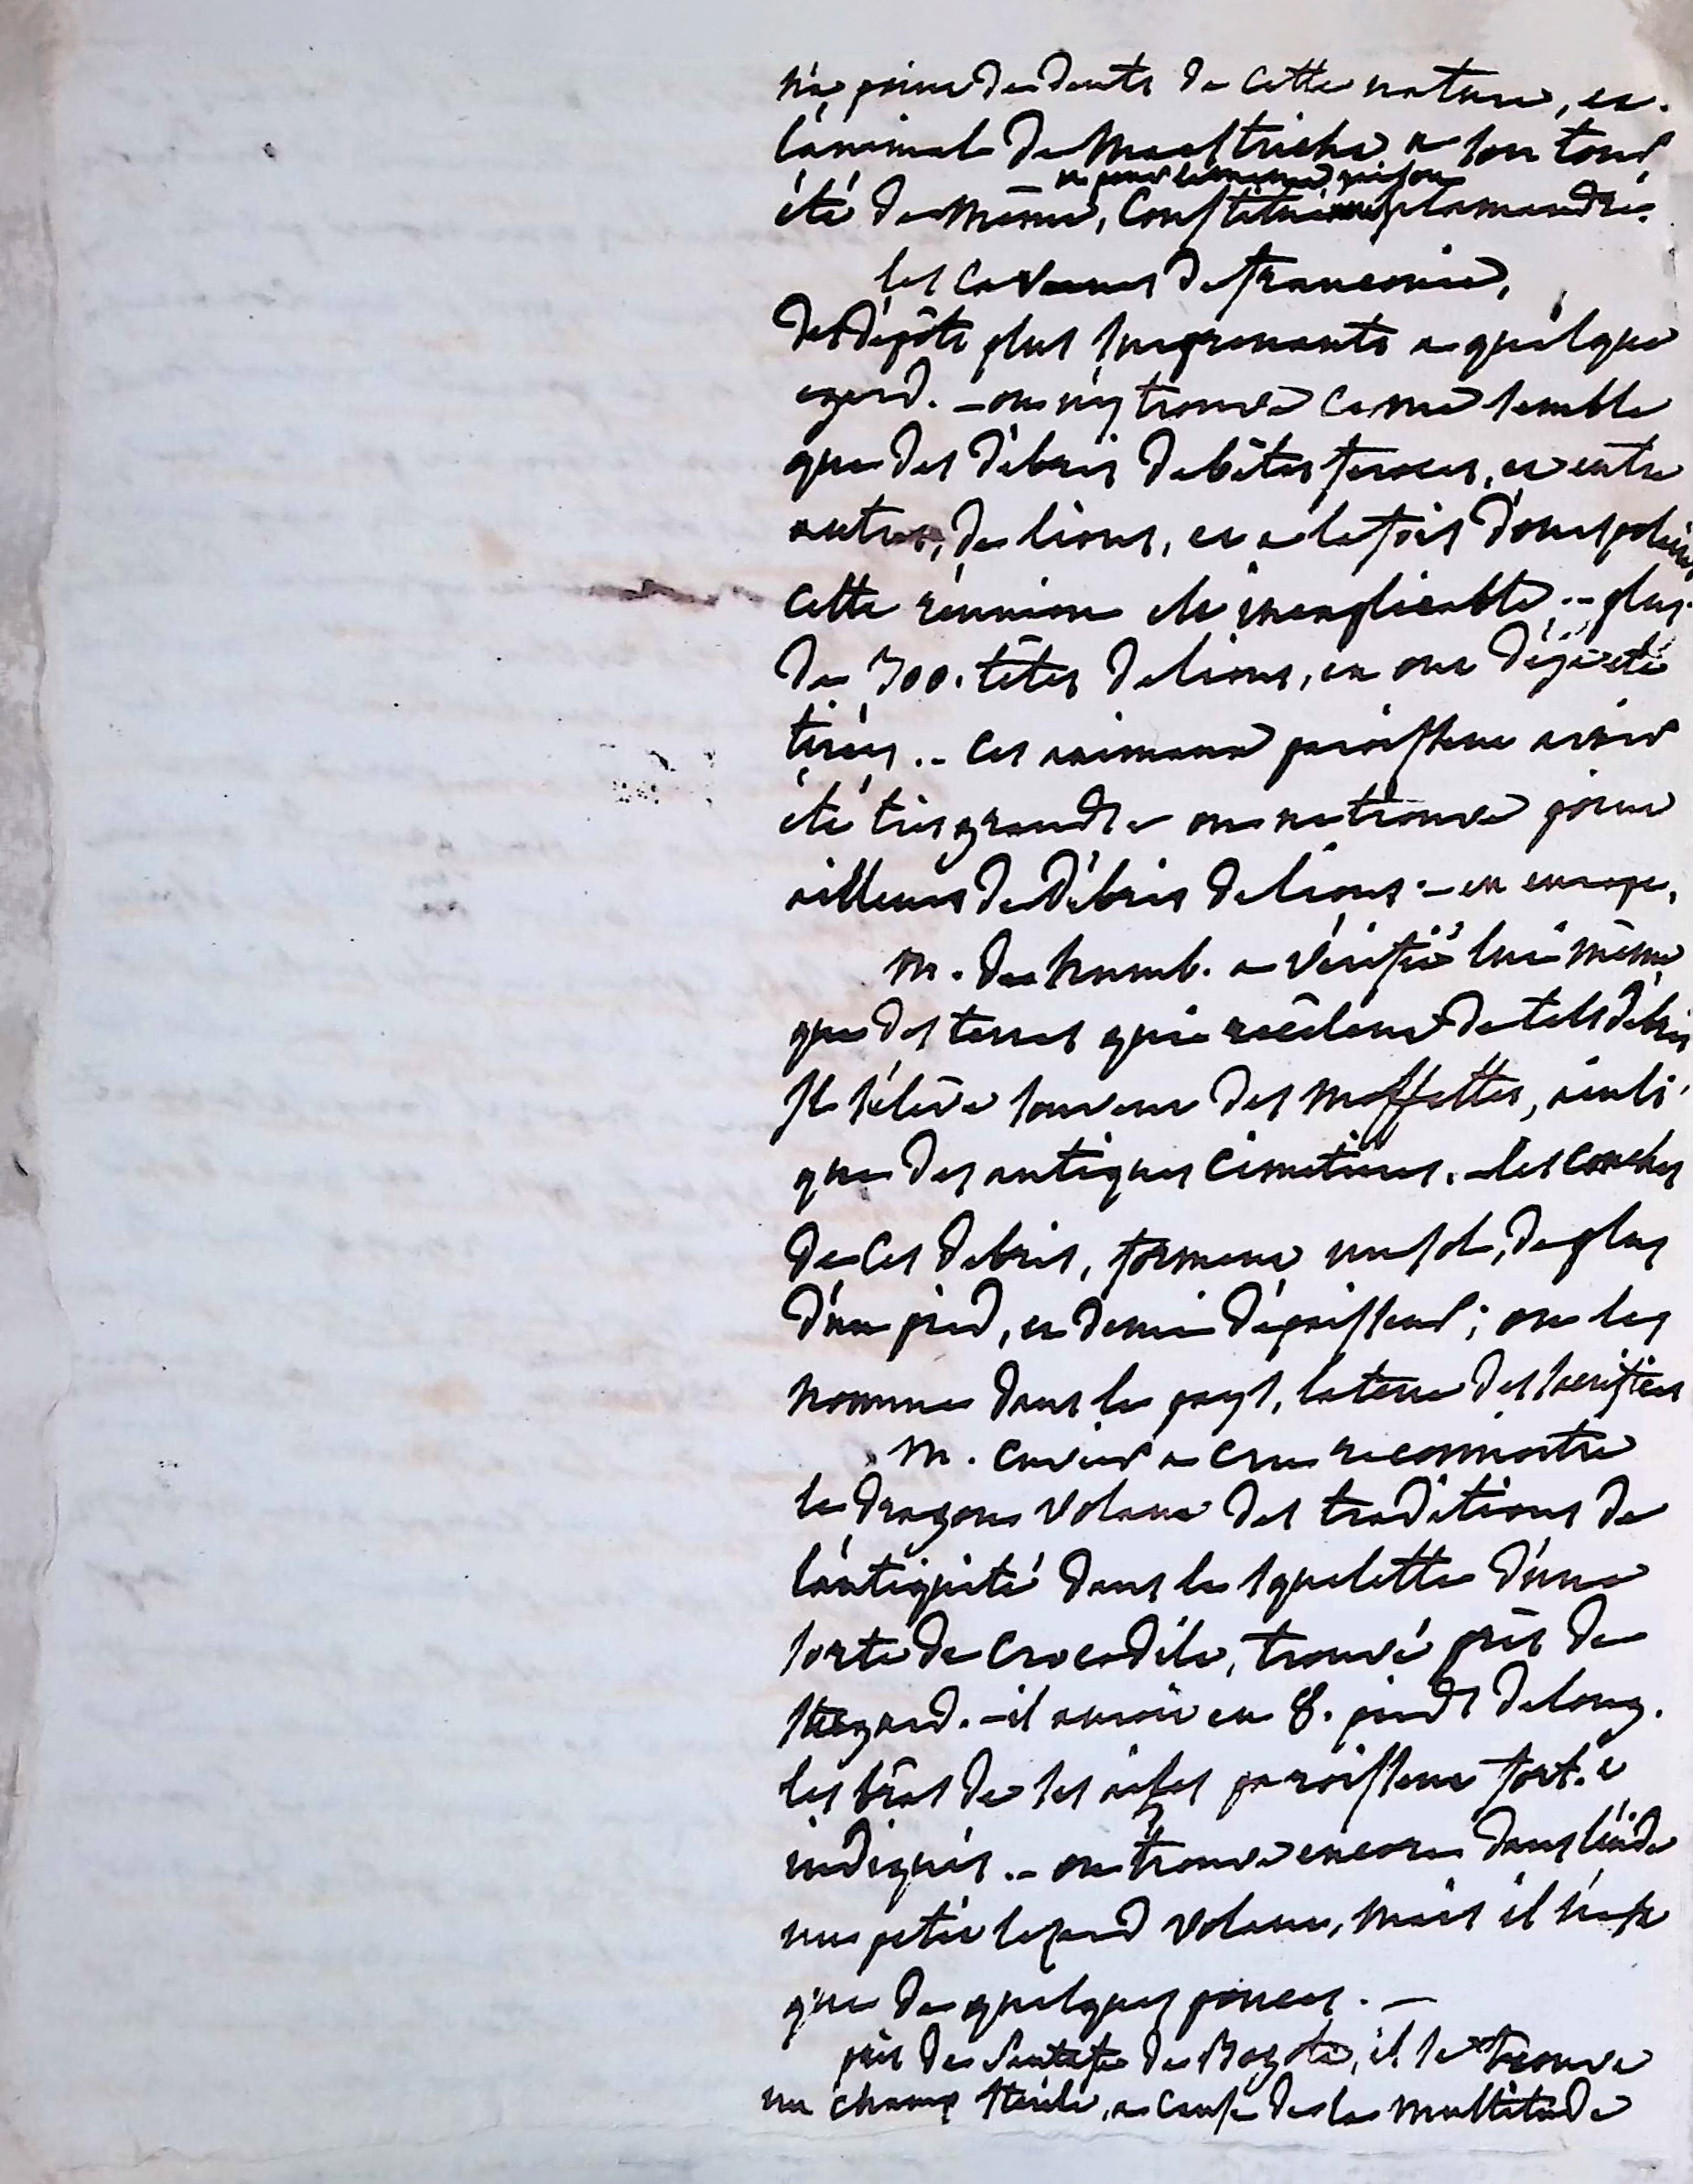 n'a point des dents de cette nature, et
l'animal de Maestricht a son tour
et pour la même raison
été de même, constitué salamandre.
les Cavernes de franconie,
des dépôts plus surprenants a quelque
egard. - on n'y trouve ce me semble
que des débris de bêtes feroces, et entre
autres, de lions, et a la fois d'ours polaires
cette réunion est inexplicable .- plus
de 700. têtes de lions, en ont déjà été
tirées .- ces animaux paroissent avoir
été très grands et on ne trouve point
ailleurs de débris de lions - en europe.
M. de humb. a vérifié lui même
que des terres qui recèlent de tels débris
Il s'élève souvent des moffettes, ainsi
que des antiques cimetières. - les couches
de ces débris, forment un sol, de plus
d'un pied, et demi d'épaisseur; on les
nomme dans le pays, la terre des sacrifices
M. Cuvier a cru reconnoitre
le dragon volant des traditions de
l'antiquité dans le squelette d'une
sorte de crocodile, trouvé près de
il auroit eu 8. pieds de long.
les bras de ses ailes paroissent fort.
indiqués .- on trouve encore dans l'inde
un petit lezard volant, mais il n'est
que de quelques pouces. -
près de Santafe de Bogota, il se trouve
un champ stérile, a cause de la multitude